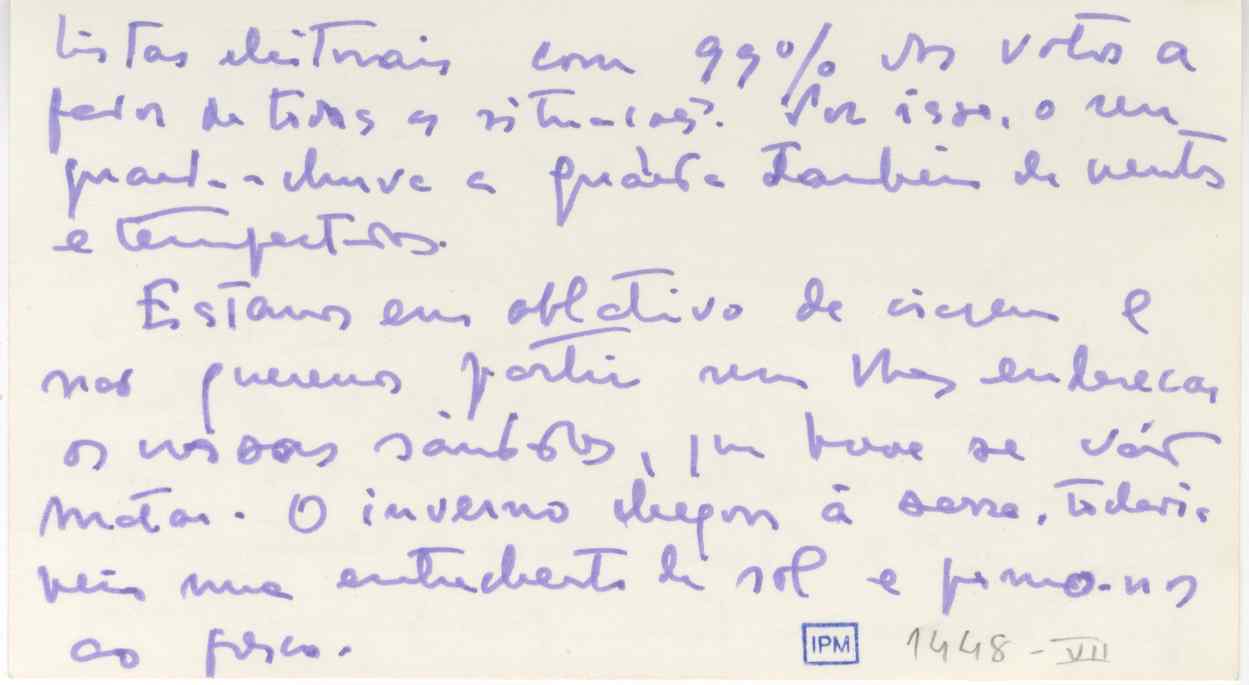 listas eleitorais com 99% dos votos a
favor de todas as situações. Por isso, o seu
guarda-chuva a guarda também de ventos
e tempestades.
Estamos em ablativo de viagem e
não queremos partir sem lhes endereçar
as nossas saudades, que breve se vão
matar. O inverno chegou à serra, todavia
veio uma entreaberta de sol e pomo-nos
ao fresco.
IPM 1448-VII